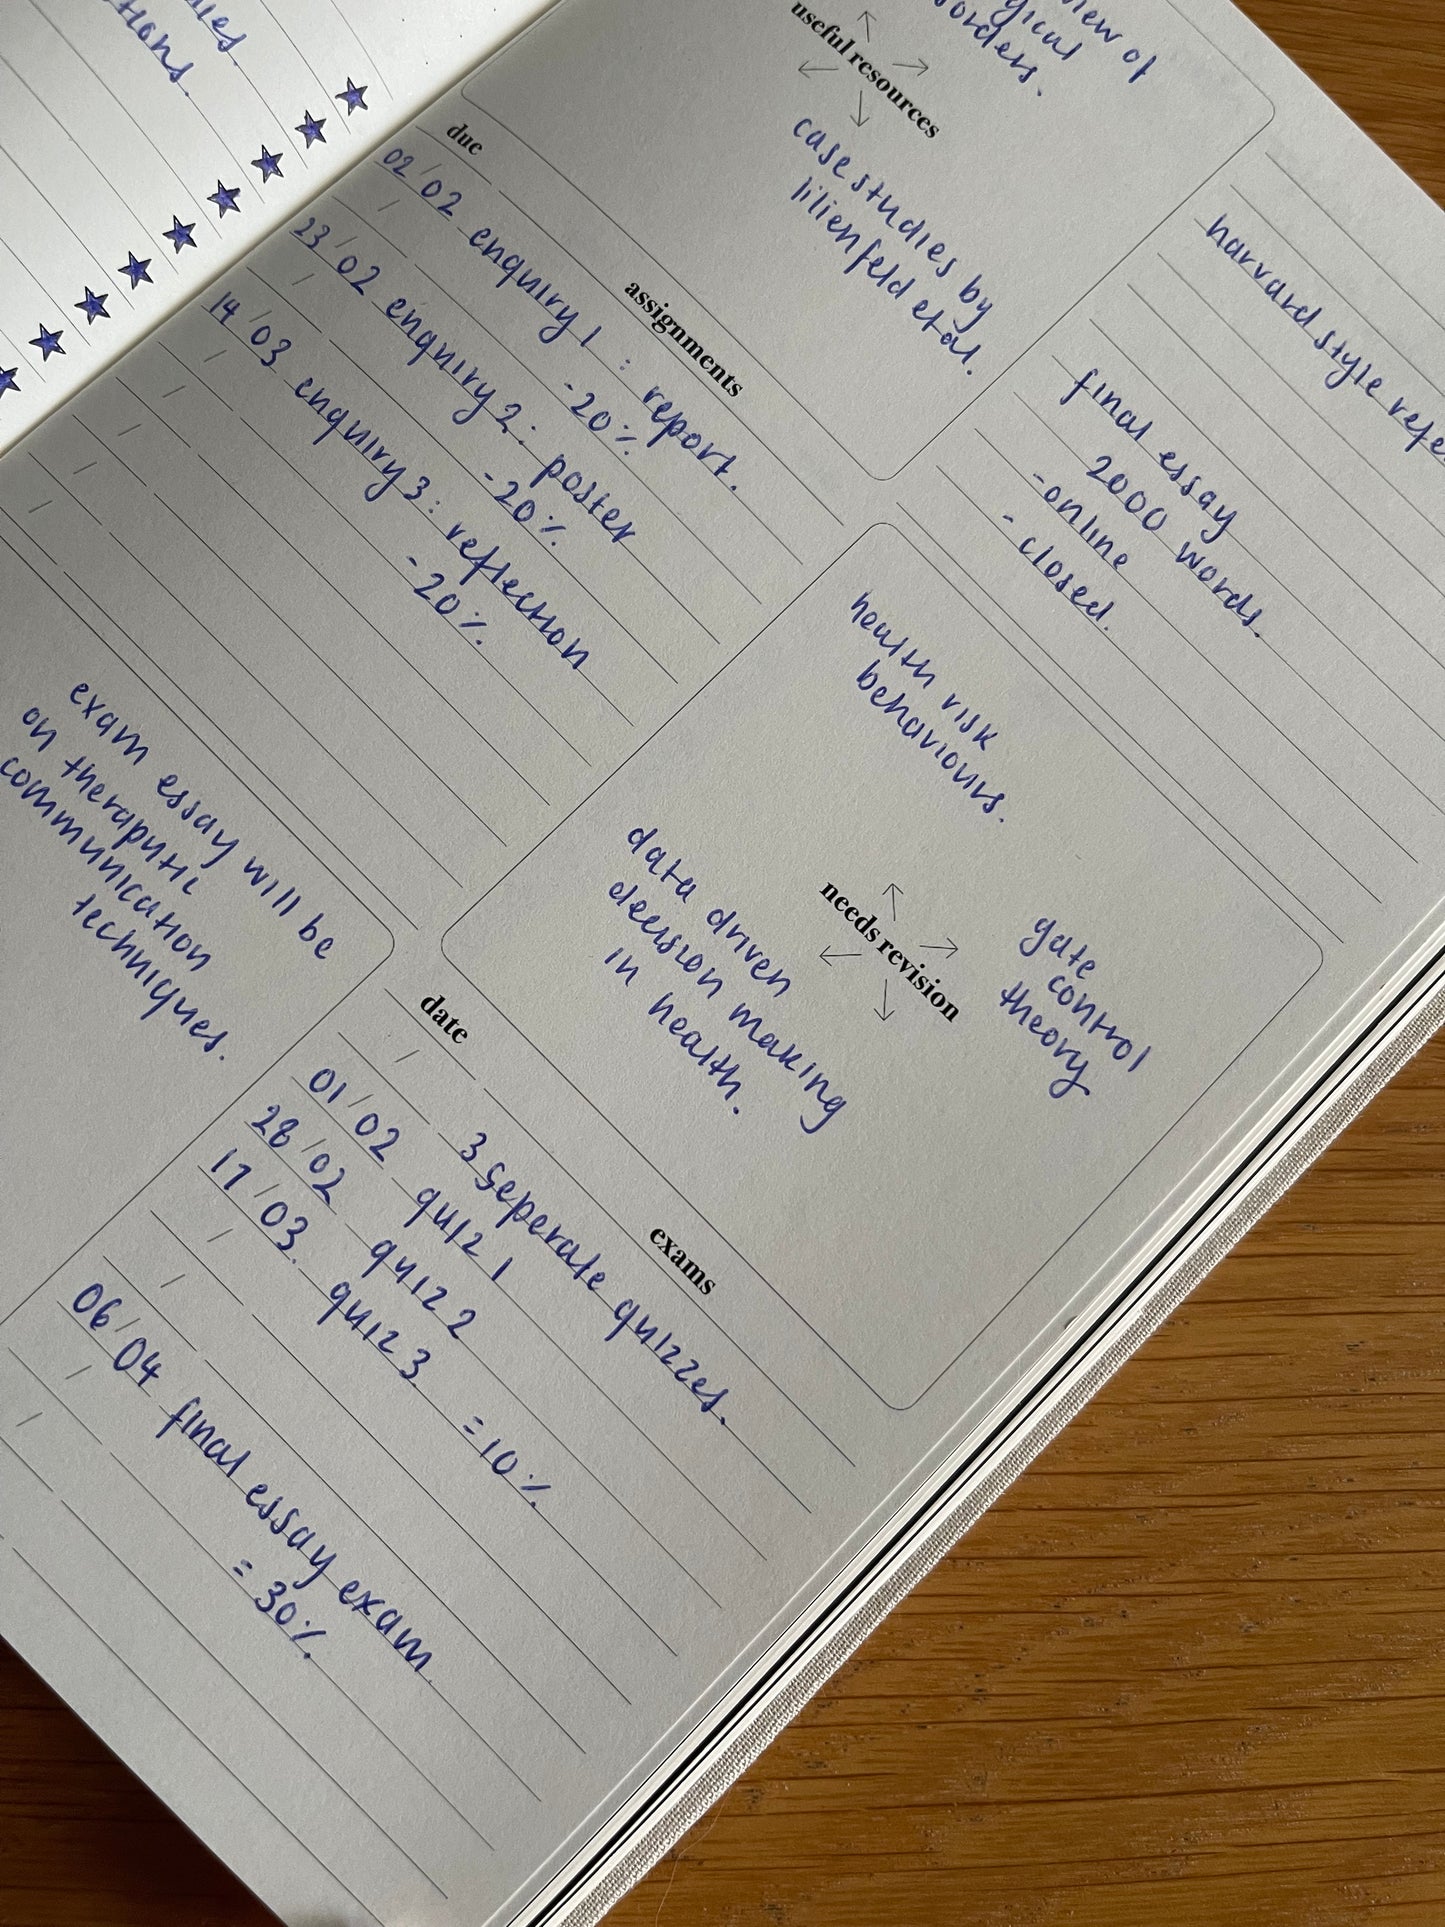 tions.
useful resources
case studies by
lilienfeld etal.
due
assignments
02/02 enquiry 1 : report.
- 20%
23/02 enquiry 2: poster
- 20%
14/03 enquiry 3: reflection
- 20%
harvard style
final essay
2000 words.
- online
- closed.
health risk
behaviours.
needs revision
data driven
decision making
in health.
gate
control
theory
exam essay will be
on theraputic
communication
techniques.
date
exams
3 seperate quizzes.
01/02 quiz 1
28/02 quiz 2
17/03. quiz 3
= 10%
06/04 final essay exam.
= 30%